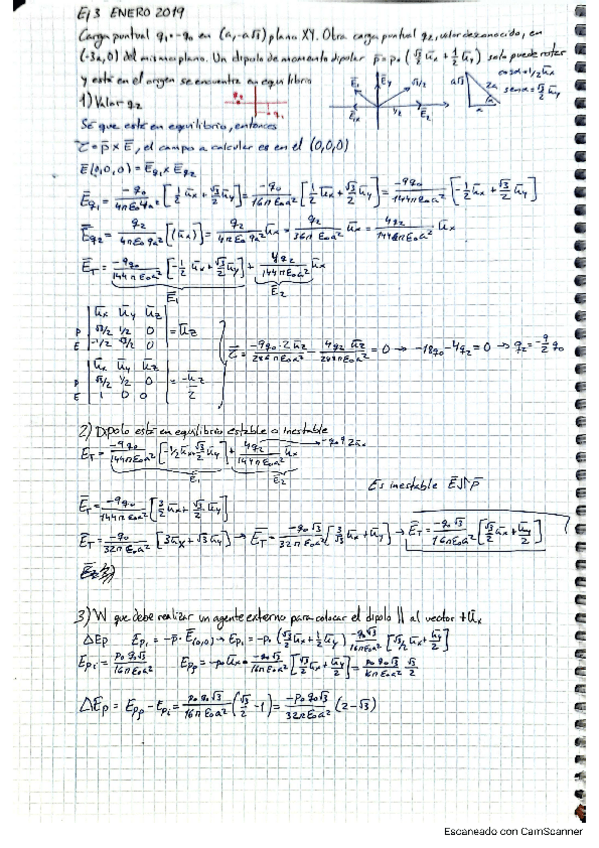 Ej 3 ENERO 2019
Carga puntual q₁=-q₀ en (a,-a√3) plano XY. Otra carga puntual q₂, valor desconocido, en
(-3a,0) del mismo plano. Un dipolo de momento dipolar p̄=p₀(√3/2 ūx + 1/2 ūy) solo puede rotar
y está en el origen se encuentra en equilibrio
cosα=1/2 ūx
senα=√3/2 ūy
a√3 2a a
1) Valor q₂
Sé que está en equilibrio, entonces
τ̄=p̄×Ē, el campo a calcular es en el (0,0,0)
Ē(0,0,0)=Ēq₁×Ēq₂
Ēq₁=-q₀/4πε₀4a² [1/2 ūx+√3/2 ūy]=-q₀/16πε₀a² [1/2 ūx+√3/2 ūy]=-9q₀/144πε₀a² [-1/2 ūx+√3/2 ūy]
Ēq₂=q₂/4πε₀9a² [(1ūx)]=q₂/4πε₀9a² ūx=q₂/36πε₀a² ūx=4q₂/144πε₀a² ūx
ĒT=-9q₀/144πε₀a² [-1/2 ūx+√3/2 ūy]+4q₂/144πε₀a² ūx
Ē₁ Ē₂
ūx ūy ūz
P √3/2 1/2 0 =ūz
E -1/2 √3/2 0
τ̄=-9q₀·2ūz/288πε₀a² - 4q₂ūz/288πε₀a²=0 → -18q₀-4q₂=0 → q₂=-9/2 q₀
ūx ūy ūz
P √3/2 1/2 0 =-uz/2
E 1 0 0
2) Dipolo está en equilibrio estable o inestable
ĒT=-9q₀/144πε₀a² [-1/2ūx+√3/2 ūy]+4q₂/144πε₀a² ūx
Ē₁ Ē₂
Es inestable Ē↓↑p̄
ĒT=-9q₀/144πε₀a² [3/2 ūx+√3/2 ūy]
ĒT=-q₀/32πε₀a² [3ūx+√3ūy] → ĒT=-q₀√3/32πε₀a² [3/√3 ūx+ūy] → ĒT=-q₀√3/16πε₀a² [√3/2 ūx+ūy/2]
3) W que debe realizar un agente externo para colocar el dipolo || al vector +ūx
ΔEp Epi=-p̄·Ē(0,0) → Epi=-p₀(√3/2 ūx+1/2 ūy)·-q₀√3/16πε₀a² [√3/2 ūx+ūy/2]
Epi=p₀q₀√3/16πε₀a² Epf=-p₀ūx·-q₀√3/16πε₀a² [√3/2 ūx+ūy/2]=p₀q₀√3/16πε₀a² √3/2
ΔEp=Epf-Epi=p₀q₀√3/16πε₀a² (√3/2-1)=-p₀q₀√3/32πε₀a² (2-√3)
Escaneado con CamScanner